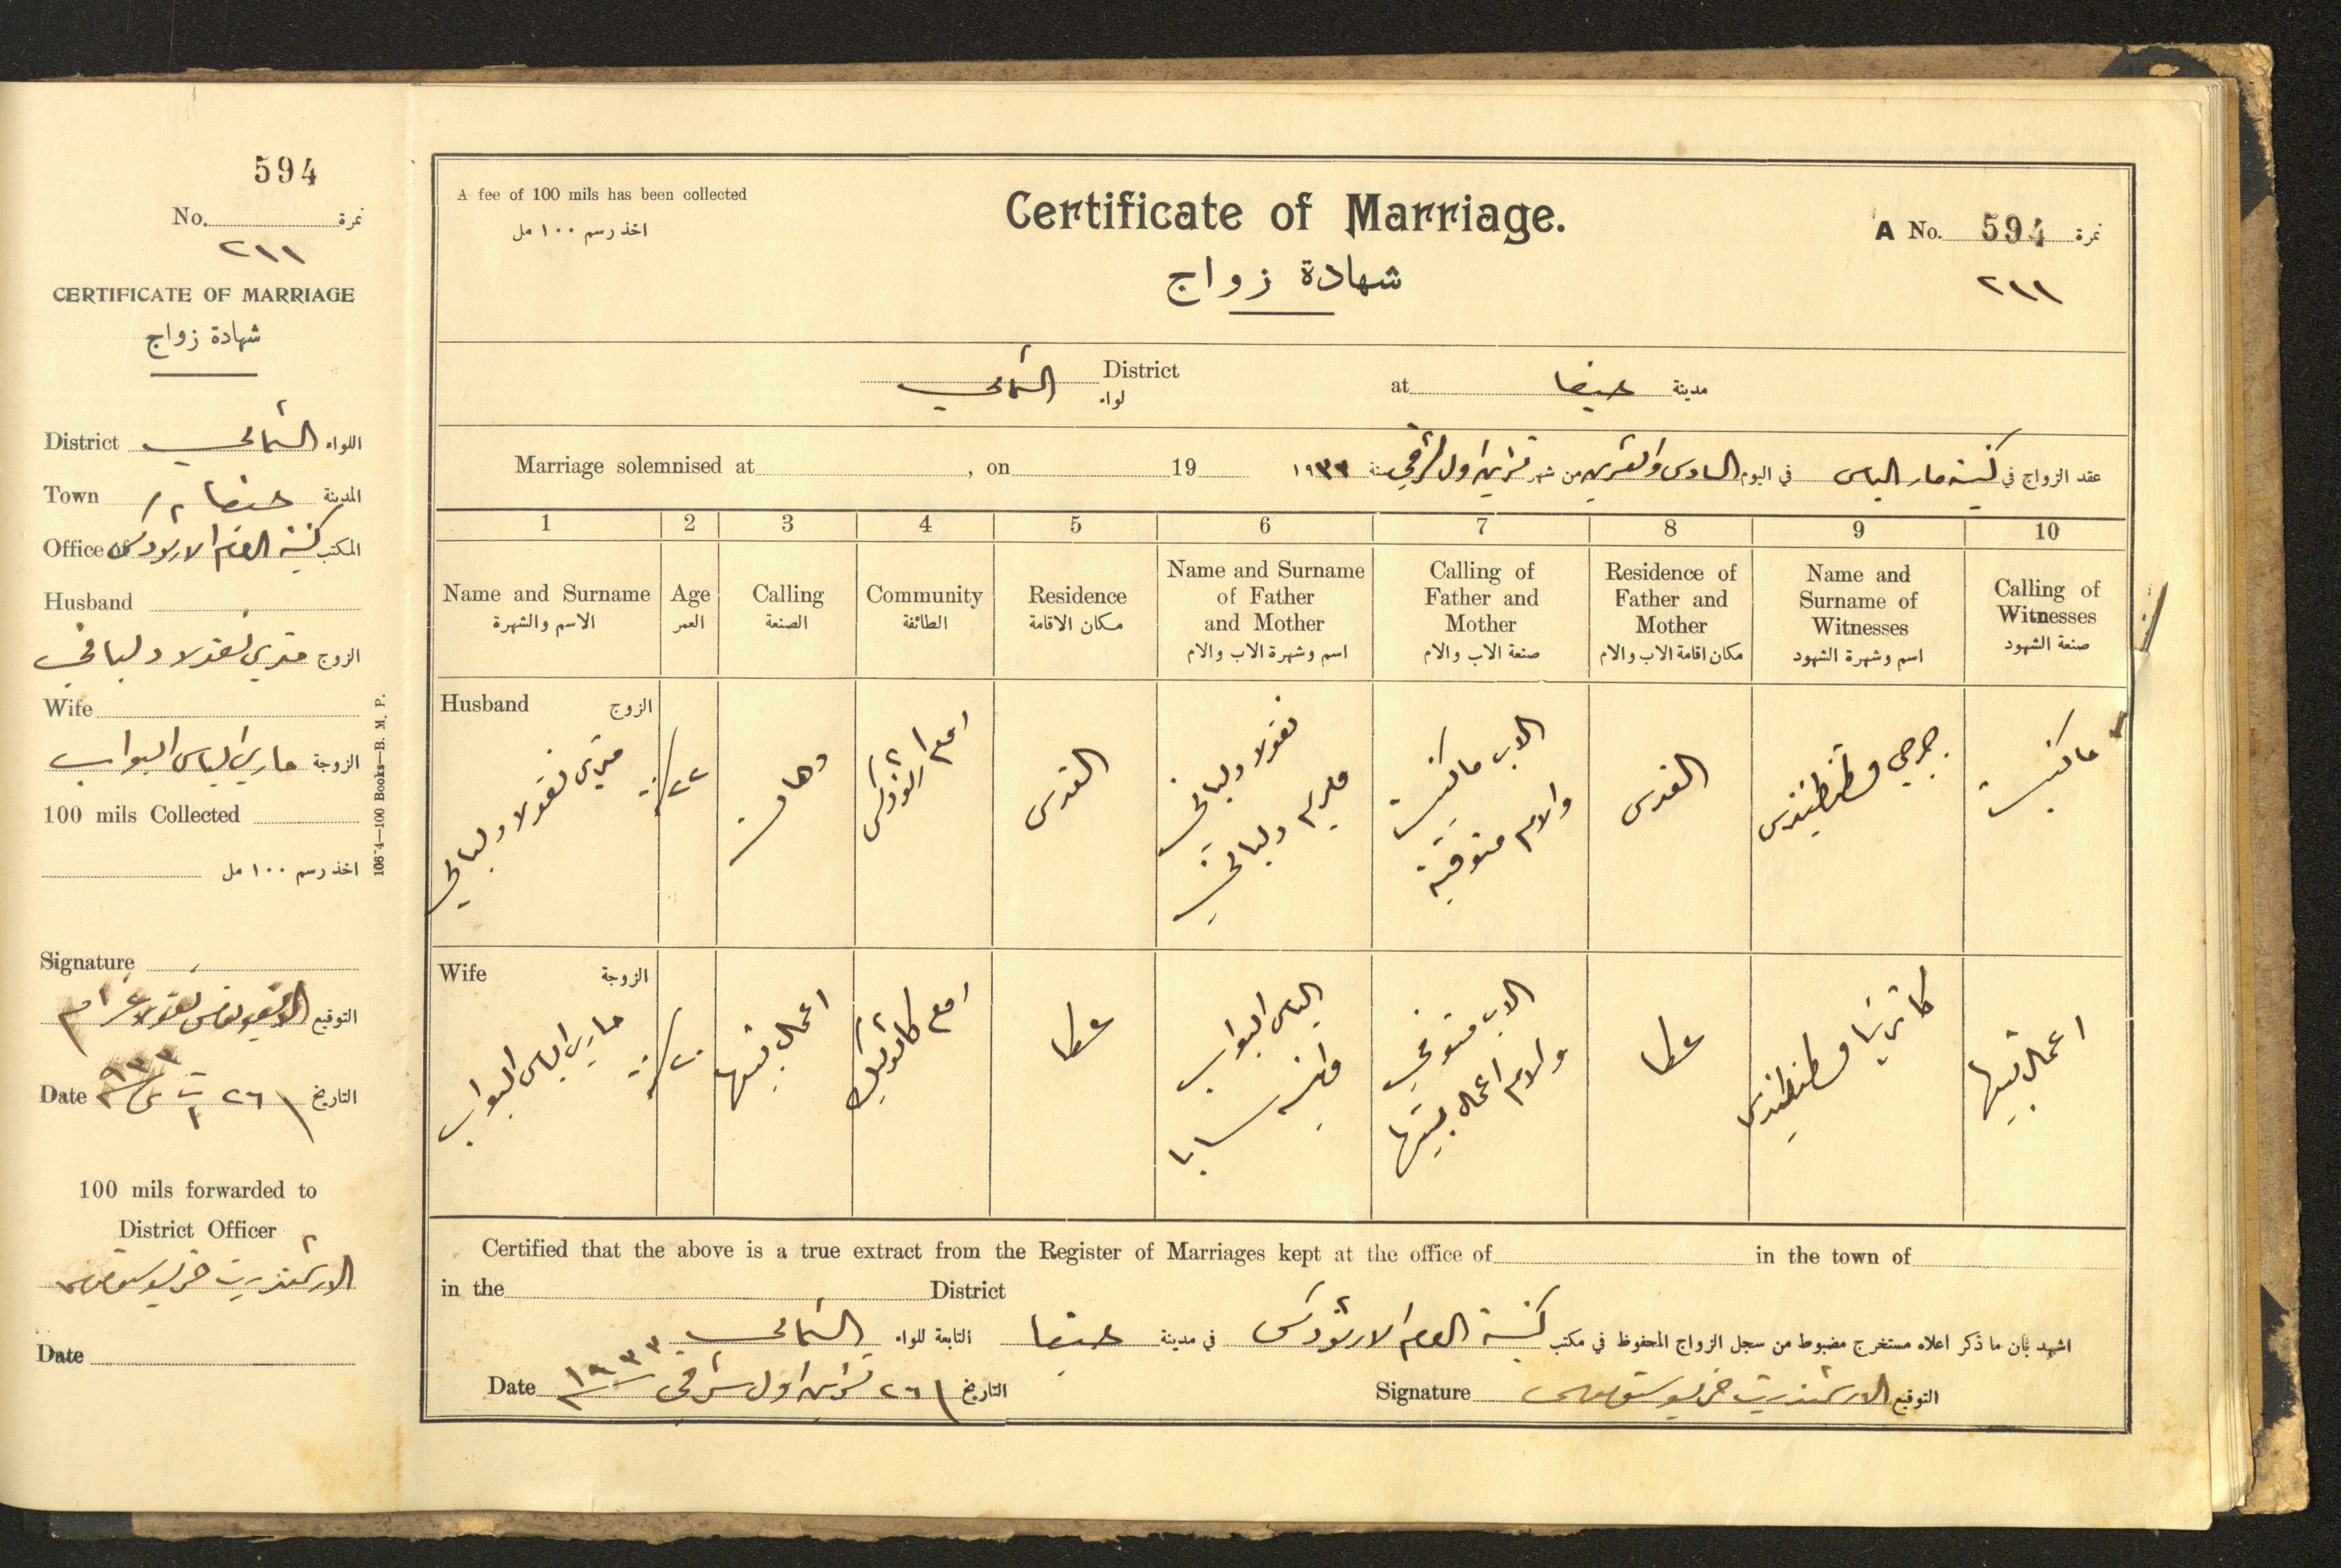 594
No. نمرة
٢١١
CERTIFICATE OF MARRIAGE
شهادة زواج
District الشمالي اللواء
Town حيفا المدينة
Office كنيسة الروم الارثوذكس المكتب
Husband
الزوج متري نقولا دلباني
Wife
الزوجة ماري الياس البواب
100 mils Collected
اخذ رسم ١٠٠ مل
Signature
التوقيع نقولا
Date ٢٦ ت ١ ٩٣٣ التاريخ
100 mils forwarded to
District Officer
الارشمندريت
Date
10674—100 Books—B. M. P.
A fee of 100 mils has been collected
اخذ رسم ١٠٠ مل
Certificate of Marriage.
شهادة زواج
A No. 594 نمرة
٢١١
الشمالي District لواء
at حيفا مدينة
Marriage solemnised at , on 19
عقد الزواج في كنيسة مار الياس في اليوم السادس والعشرين من شهر تشرين اول شرقي سنة ١٩٣٣
1 2 3 4 5 6 7 8 9 10
Name and Surname الاسم والشهرة
Age العمر
Calling الصنعة
Community الطائفة
Residence مكان الاقامة
Name and Surname of Father and Mother اسم وشهرة الاب والام
Calling of Father and Mother صنعة الاب والام
Residence of Father and Mother مكان اقامة الاب والام
Name and Surname of Witnesses اسم وشهرة الشهود
Calling of Witnesses صنعة الشهود
Husband الزوج
متري نقولا دلباني
٢٢ سنة
دهان
روم ارثوذكس
القدس
نقولا دلباني
مريم دلباني
الاب ماكنيست
والام متوفية
القدس
جرجي قسطنطينيدس
ماكنيست
Wife الزوجة
ماري الياس البواب
٢٠ سنة
اعمال بيتها
روم كاثوليك
عكا
الياس البواب
سابا
الاب متوفي
والام اعمال بيتها
عكا
كاترينا قسطنطينيدس
اعمال بيتها
Certified that the above is a true extract from the Register of Marriages kept at the office of in the town of
in the District
اشهد بأن ما ذكر اعلاه مستخرج مضبوط من سجل الزواج المحفوظ في مكتب كنيسة الروم الارثوذكس في مدينة حيفا التابعة للواء الشمالي
Date ٢٦ تشرين اول شرقي ١٩٣٣ التاريخ
Signature الارشمندريت التوقيع